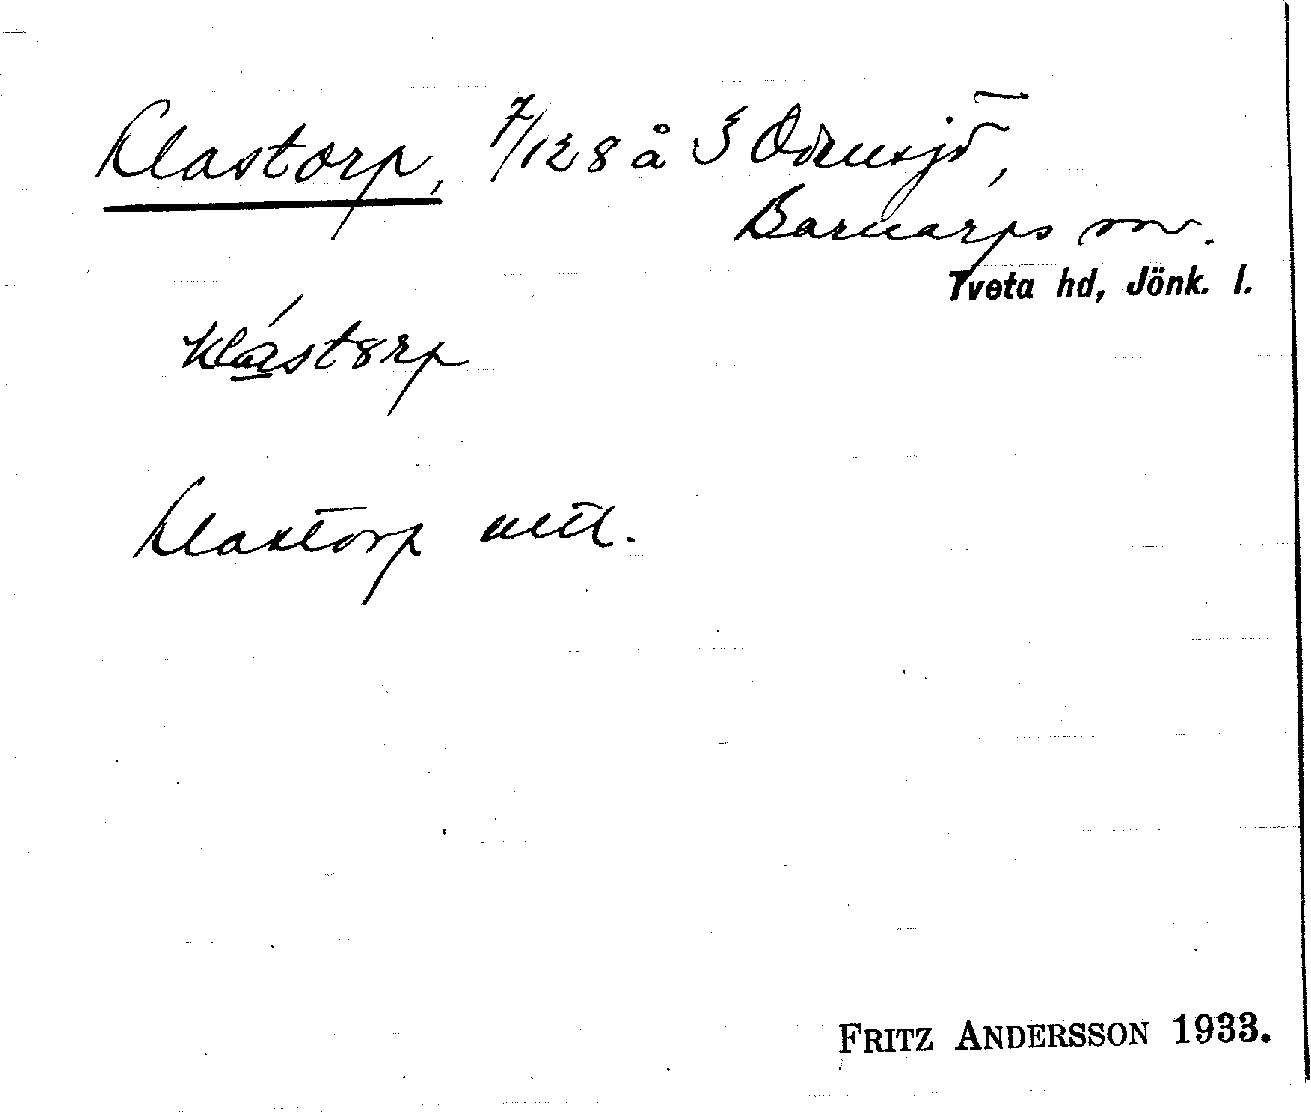 Klastorp, 7/128 å 3 Odensjö,
Barnarps sn.
Tveta hd, Jönk. l.
Klástorp
Klastorp uttl.
FRITZ ANDERSSON 1933.